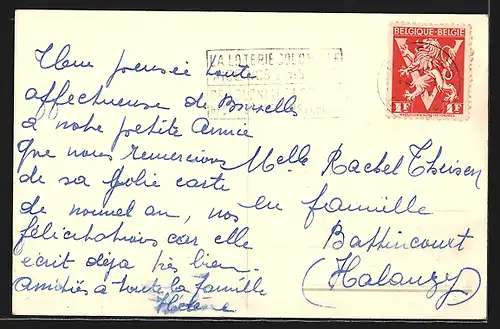 Une pensée toute
affectueuse de Bruxelles
à notre petite Amie
que nous remercions
de sa jolie carte
de nouvel an, nos
félicitations car elle
écrit déjà très bien.
Amitiés à toute la famille
Hélène
LA LOTERIE COLONIALE
BELGIQUE-BELGIE
1F 1F
Melle Rachel Theisen
en famille
Battincourt
(Halanzy)